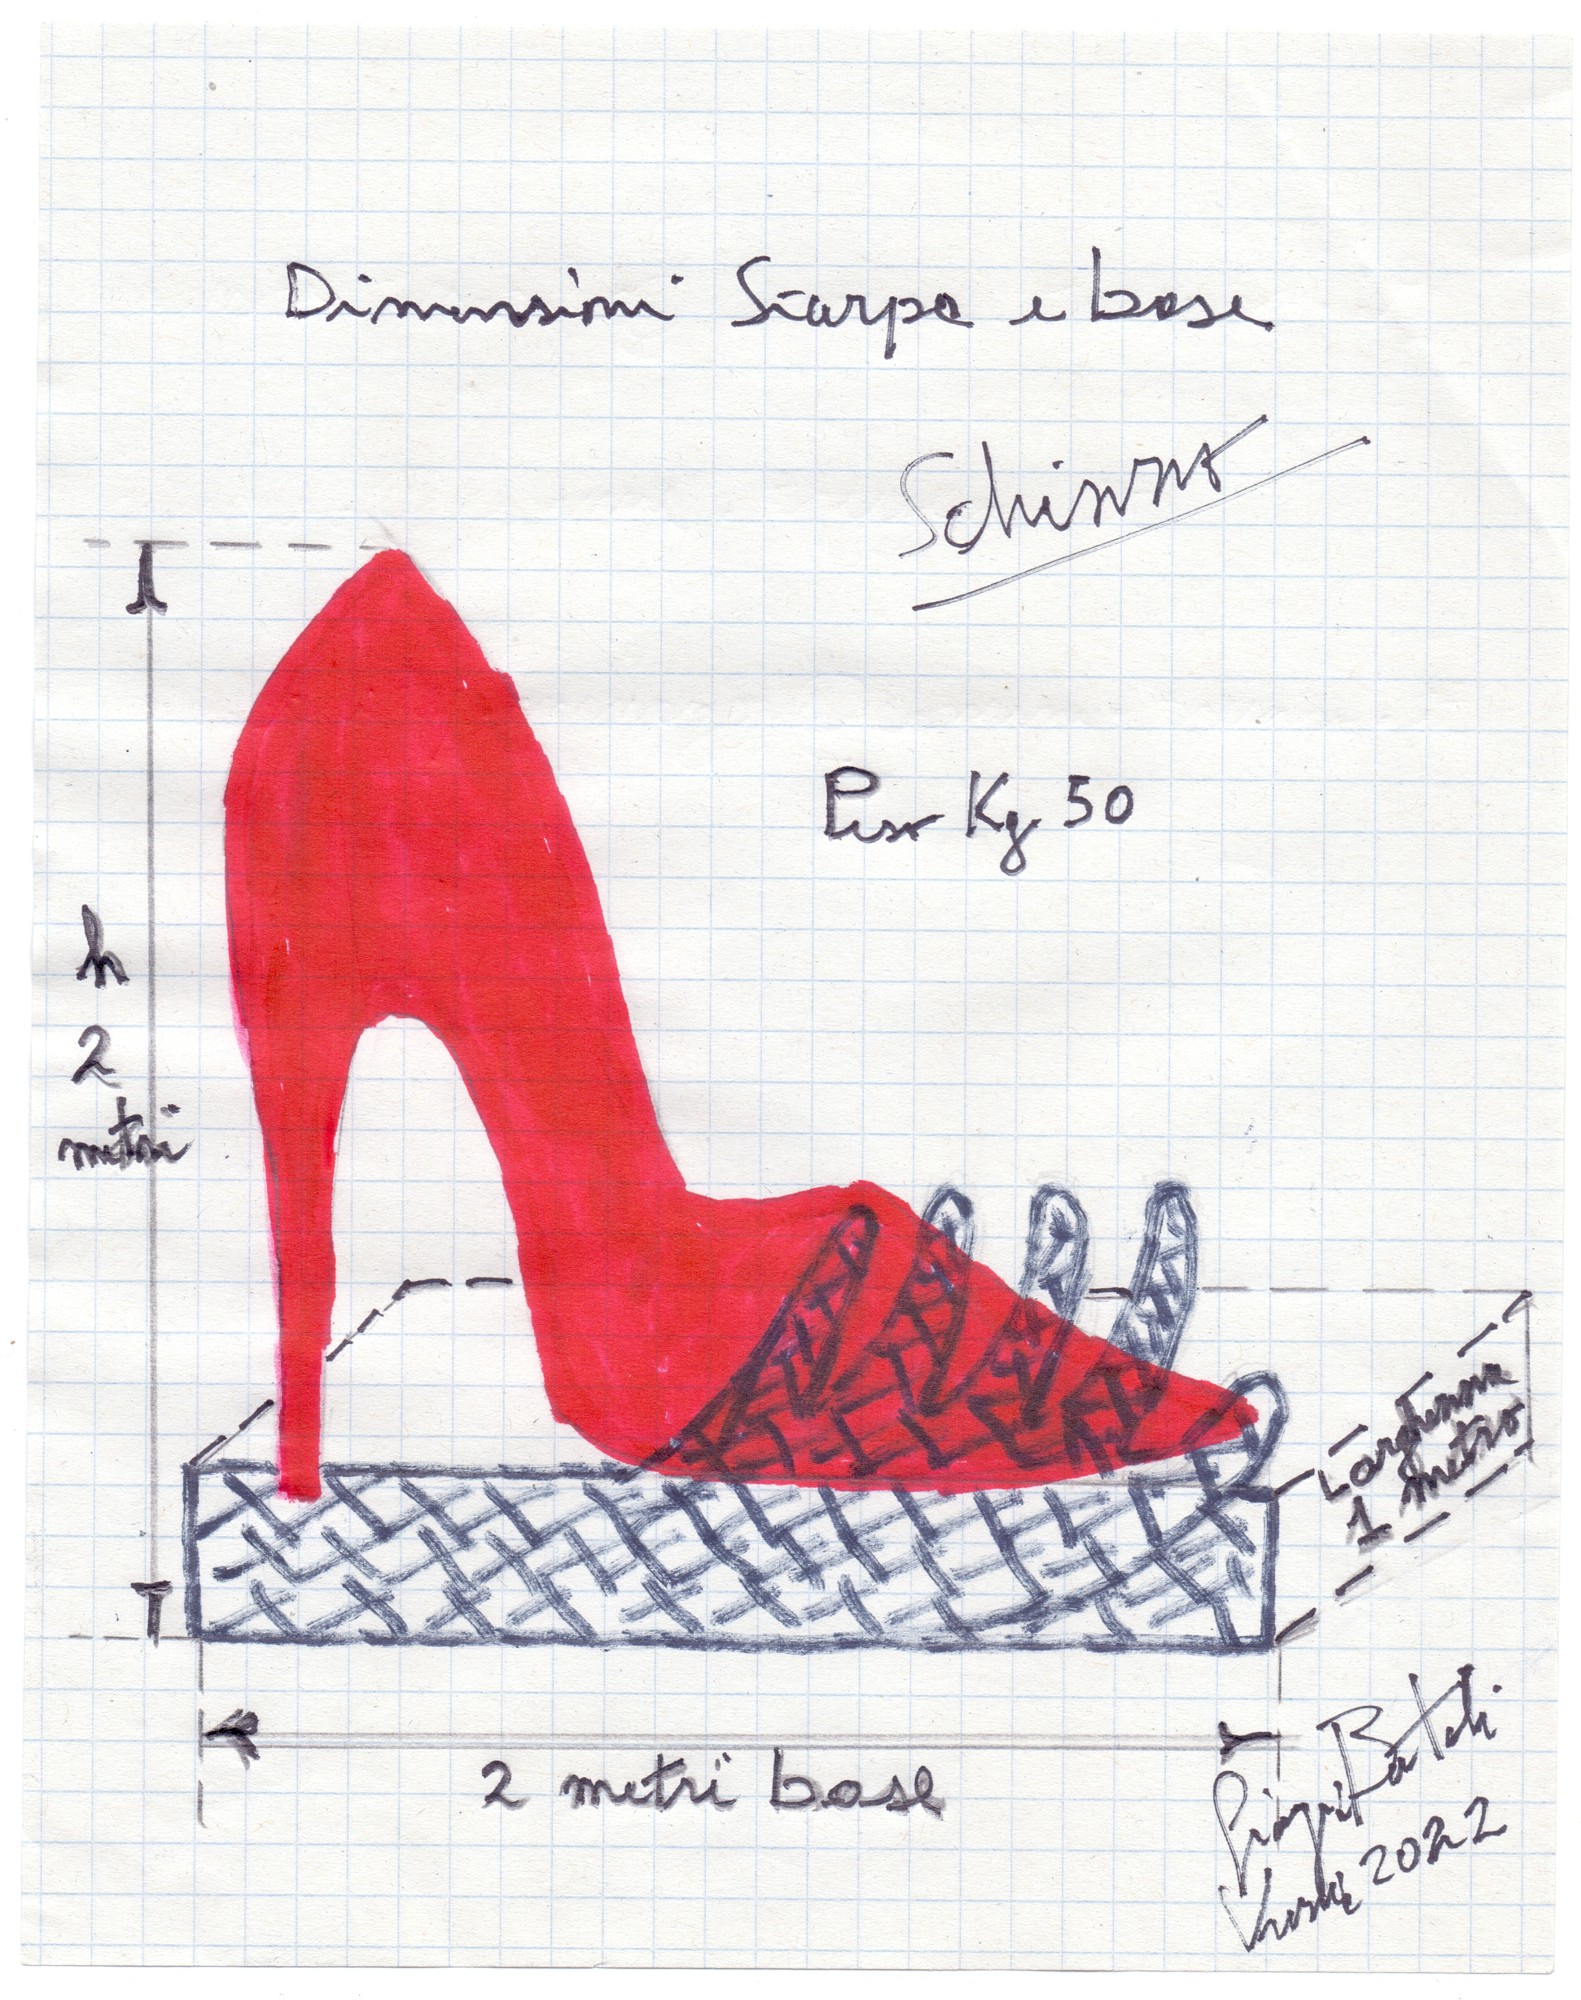 Dimensioni Scarpa e base
Schizzo
Peso Kg 50
h
2
metri
Larghezza
1 metro
2 metri base
2022